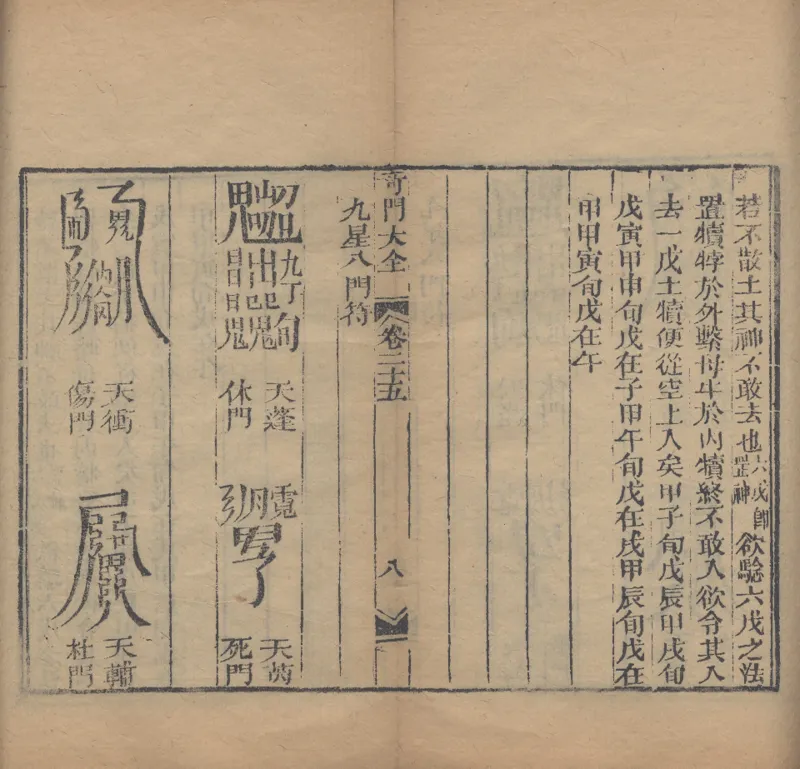 若不散土其神不敢去也六戊即罡神欲驗六戊之法
置犢牸於外繫母牛於内犢終不敢入欲令其入
去一戊土犢便從空上入矣甲子旬戊辰甲戌旬
戊寅甲申旬戊在子甲午旬戊在戌甲辰旬戊在
申甲寅旬戊在午
奇門大全 卷二十五 八
九星八門符
天蓬
休門
天芮
死門
天衝
傷門
天輔
杜門